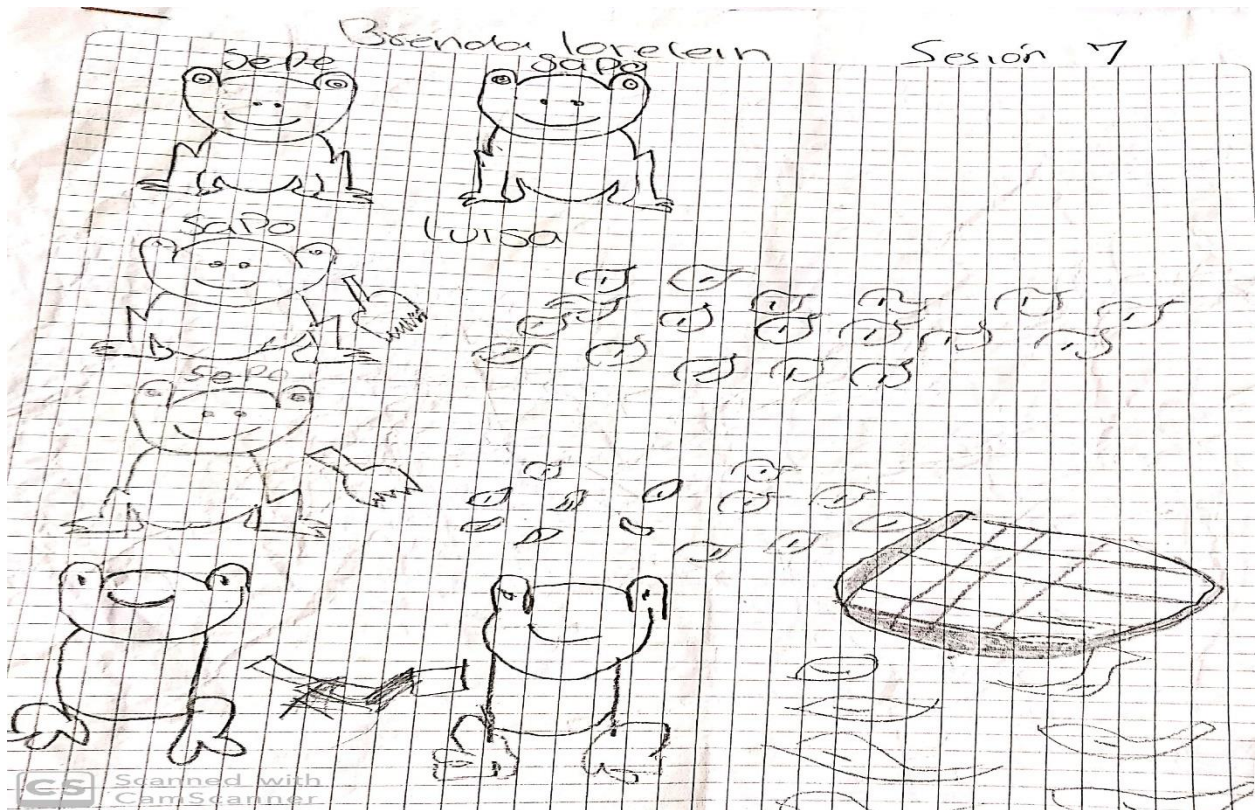 Brenda lorelein
Sesión 7
Sepe
Sapo
Sapo
Luisa
Sepo
CS Scanned with
CamScanner